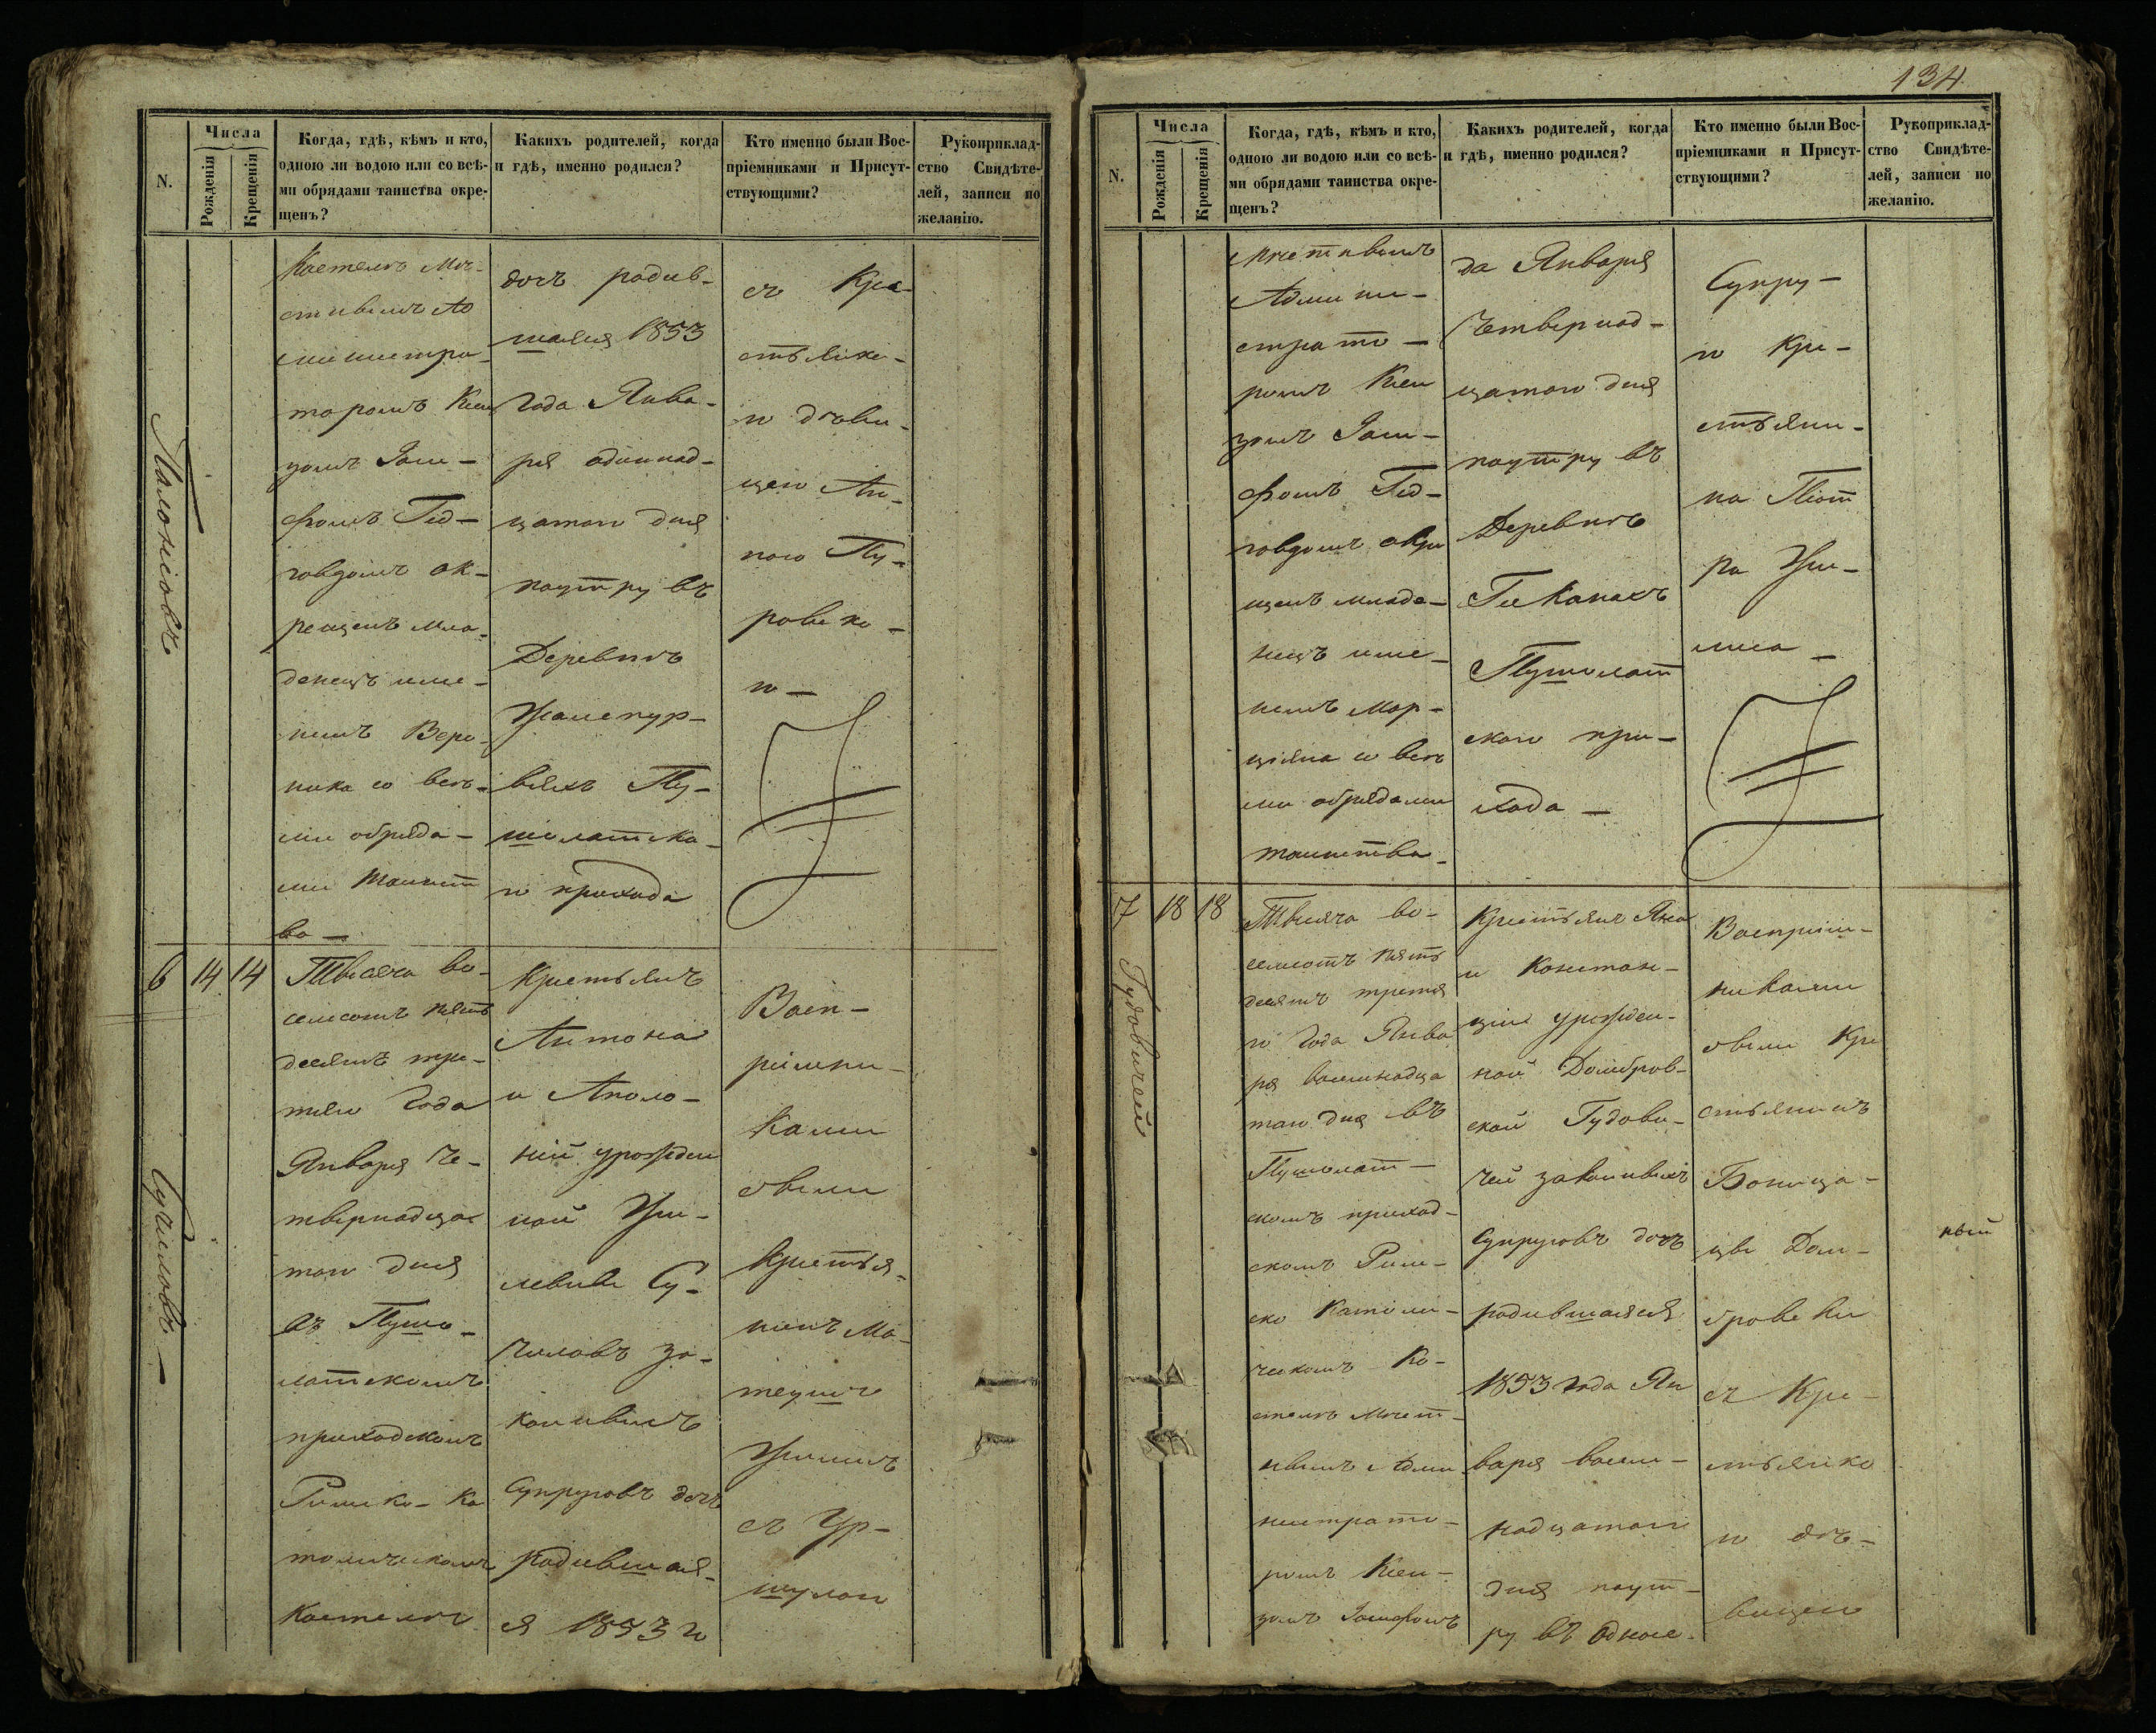 134.
N.
Числа
Рожденія
Крещенія
Когда, гдѣ, кѣмъ и кто,
одною ли водою или со всѣ-
ми обрядами таинства окре-
щенъ?
Какихъ родителей, когда
и гдѣ, именно родился?
Кто именно были Вос-
пріемниками и Присут-
ствующими?
Рукоприклад-
ство Свидѣте-
лей, записи по
желанію.
Костелѣ Мѣ-
стнымъ Ад
министра-
торомъ Ксен
зомъ Іоси-
фомъ Гед-
говдомъ ок-
рещенъ мла-
денецъ име-
немъ Веро-
ника со всѣ-
ми обряда-
ми таинст
ва —
дочь родив-
шаяся 1853
Года Янва-
ря одинад-
цатого дня
поутру въ
Деревнѣ
Пу-
шолатска-
го прихода
съ Кре-
стьянко-
ю дѣви-
цею Ан-
ною Пу-
ровско-
ю —
6 14 14
Тысяча во-
семсотъ пять
десятъ тре-
тяго Года
Января че-
твернадца
таго дня
въ Пушо-
латскомъ
приходскомъ
Римско-Ка
толическомъ
Костелѣ
Крестьянъ
Антона
и Аполо-
ніи урожден
ной
Су-
чиловъ за-
конныхъ
Супруговъ дочь
родившая-
ся 1853 го
Восп-
ріемни-
ками
были
Крестья-
нинъ Ма-
теушъ
съ Ур-
шулою
N.
Числа
Рожденія
Крещенія
Когда, гдѣ, кѣмъ и кто,
одною ли водою или со всѣ-
ми обрядами таинства окре-
щенъ?
Какихъ родителей, когда
и гдѣ, именно родился?
Кто именно были Вос-
пріемниками и Присут-
ствующими?
Рукоприклад-
ство Свидѣте-
лей, записи по
желанію.
Мѣстнымъ
Админи-
страто-
ромъ Ксен
зомъ Іоси-
фомъ Гед-
говдомъ окре
щенъ младе-
нецъ име-
немъ Мар-
ціяна со всѣ
ми обрядами
таинства-
да Января
Четвернад-
цатого дня
поутру въ
Деревнѣ
Пушолат
скаго при-
хода —
Супру-
го Кре-
стьяни-
на Піот
ра
7 18 18
Гудовичей
Тысяча во-
семсотъ пять
десятъ третя
го Года Янва
ря восемнадца
таго дня въ
Пушолат-
скомъ приход-
скомъ Рим-
ско Католи-
ческомъ Ко-
стелѣ Мѣст-
нымъ Адми
нистрато-
ромъ Ксен-
зомъ Іосифомъ
Крестьянъ Яна
и Констан-
ціи урожден-
ной Домбров-
ской Гудови-
чей законныхъ
Супруговъ дочь
родившаяся
1853 года Ян
варя восем-
надцатаго
дня поут-
ру въ
Восприем-
никами
были Кре
стьянинъ
Дом-
бровски
съ Кре-
стьянко
ю дѣ-
вицею
ный